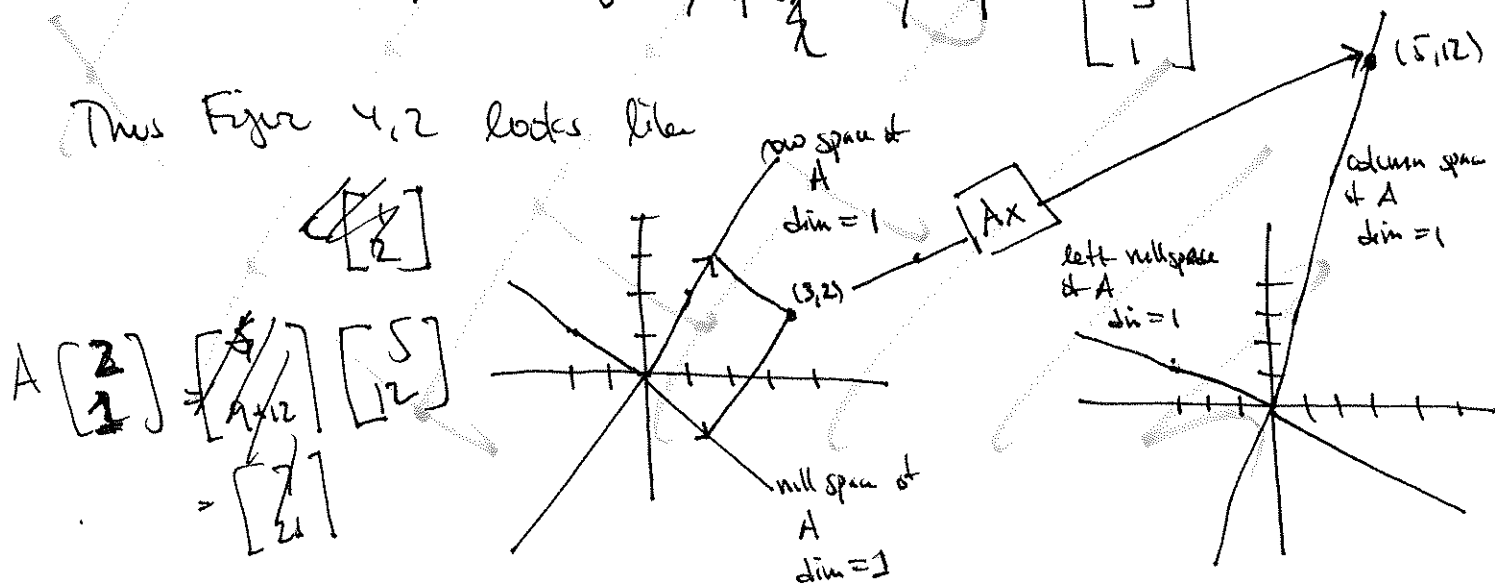 1
(5,12)
Thus Figure 4.2 looks like
row space of
A
dim = 1
Ax
column space
of A
dim = 1
left nullspace
of A
dim = 1
(3,2)
A [2 1] = [5 12]
null space of
A
dim = 1